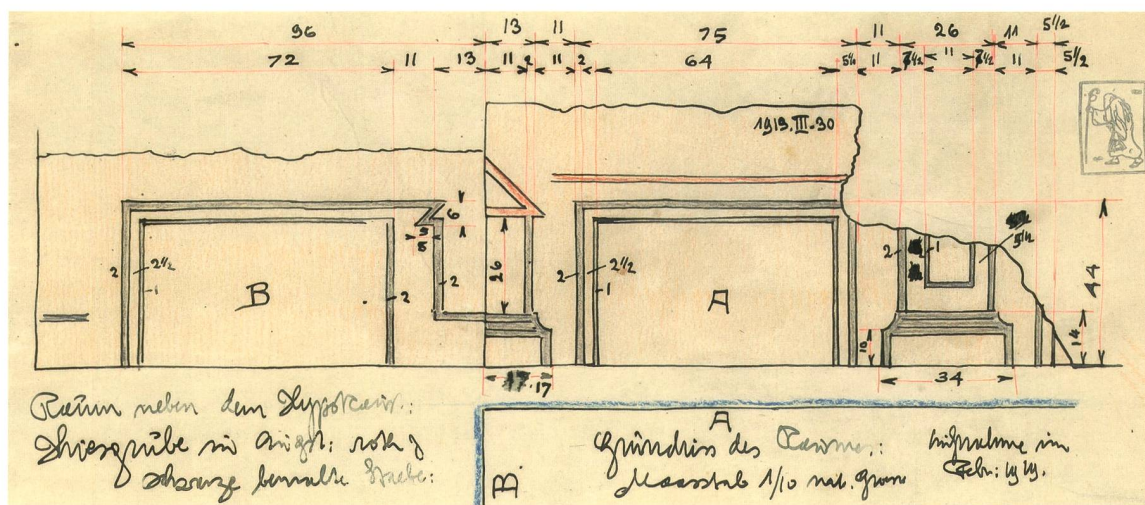 96 13 11 75 11 26 11 5 1/2
72 11 13 11 2 11 2 64 5 1/2 11 7 1/2 11 7 1/2 11 5 1/2
1919.III.30
6
5
2 2 1/2 1 B 2 2 26 2 2 1/2 1 A 2 1 5 1/2 44
10 14
17 17 34
Raum neben dem Hypokaust:
in Augst: roth &
schwarze bemalte
A
B
Grundriss des Raumes:
Maasstab 1/10 nat. Grösse
Aufnahme im
Febr: 1919.